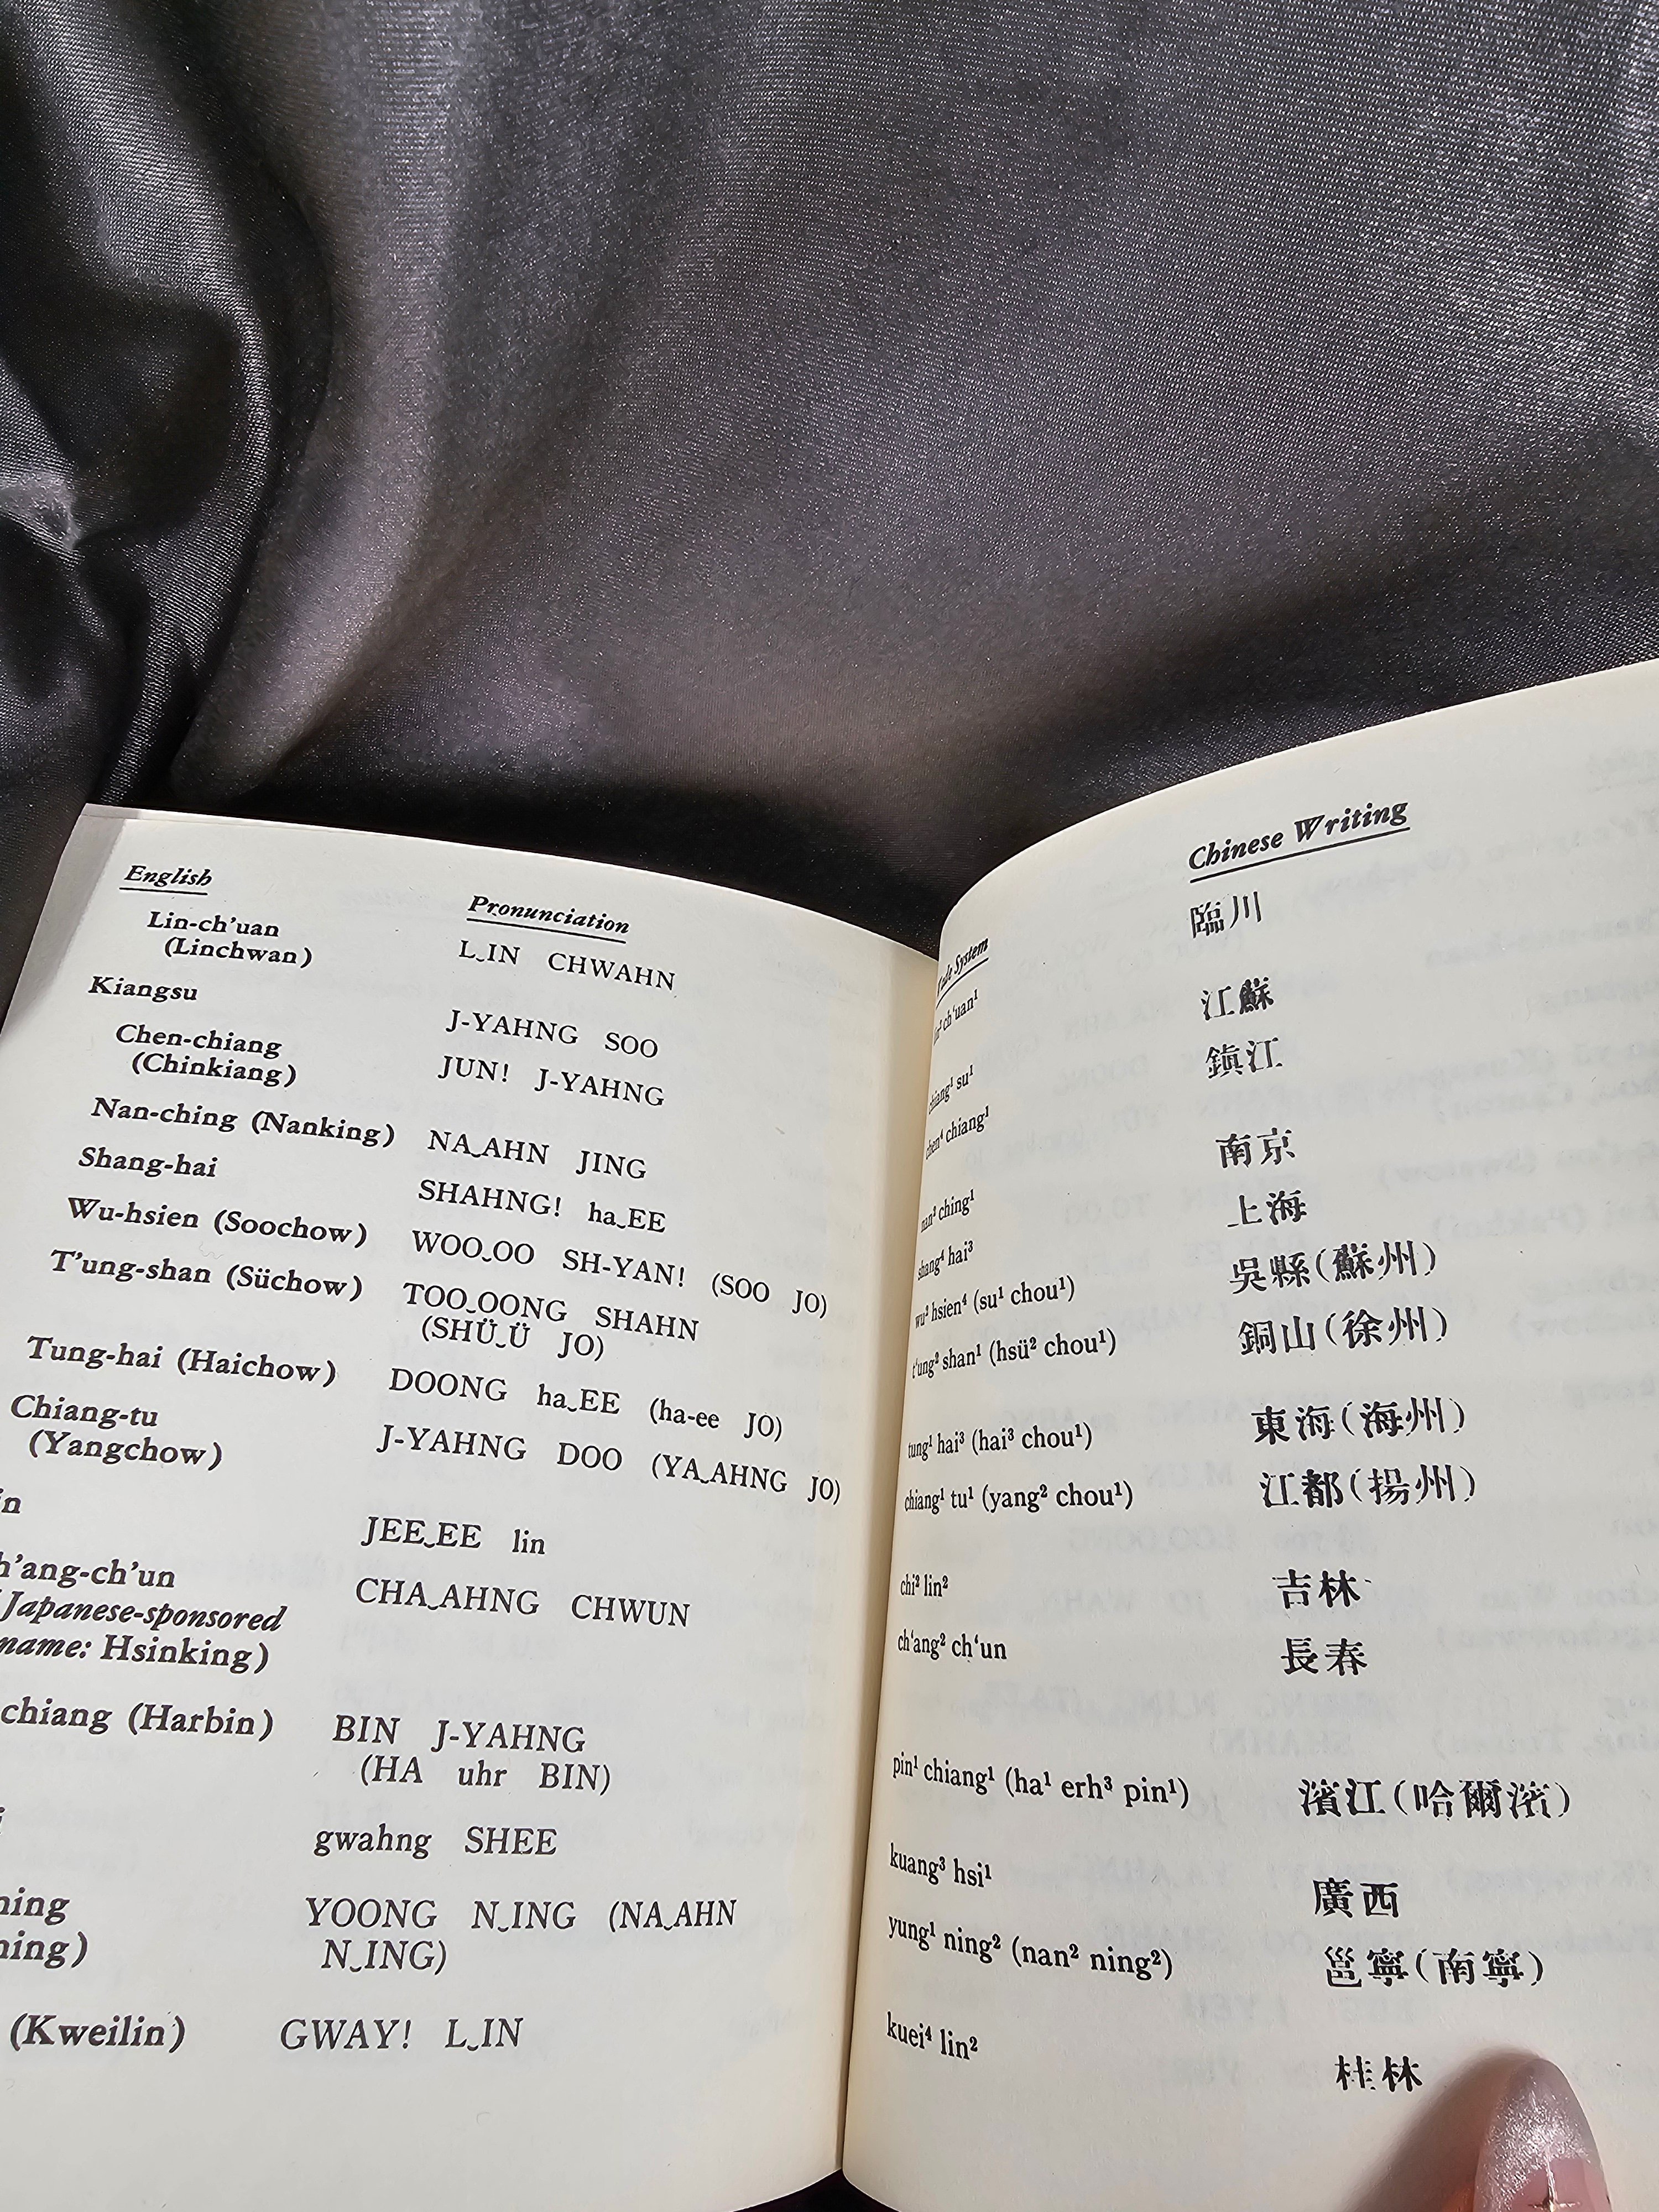 English
Pronunciation
Lin-ch'uan
(Linchwan)
L‿IN CHWAHN
Kiangsu
J-YAHNG SOO
Chen-chiang
(Chinkiang)
JUN! J-YAHNG
Nan-ching (Nanking)
NA‿AHN JING
Shang-hai
SHAHNG! ha‿EE
Wu-hsien (Soochow)
WOO‿OO SH-YAN! (SOO JO)
T'ung-shan (Süchow)
TOO‿OONG SHAHN
(SHÜ‿Ü JO)
Tung-hai (Haichow)
DOONG ha‿EE (ha-ee JO)
Chiang-tu
(Yangchow)
J-YAHNG DOO (YA‿AHNG JO)
in
JEE‿EE lin
h'ang-ch'un
(Japanese-sponsored
name: Hsinking)
CHA‿AHNG CHWUN
chiang (Harbin)
BIN J-YAHNG
(HA uhr BIN)
gwahng SHEE
ning
ning)
YOONG N‿ING (NA‿AHN
N‿ING)
(Kweilin)
GWAY! L‿IN
System
Chinese Writing
ch'uan¹
臨川
chiang¹ su¹
江蘇
chen⁴ chiang¹
鎮江
nan² ching¹
南京
shang⁴ hai³
上海
wu² hsien⁴ (su¹ chou¹)
吳縣(蘇州)
t'ung² shan¹ (hsü² chou¹)
銅山(徐州)
tung¹ hai³ (hai³ chou¹)
東海(海州)
chiang¹ tu¹ (yang² chou¹)
江都(揚州)
chi² lin²
吉林
ch'ang² ch'un
長春
pin¹ chiang¹ (ha¹ erh³ pin¹)
濱江(哈爾濱)
kuang³ hsi¹
廣西
yung¹ ning² (nan² ning²)
邕寧(南寧)
kuei⁴ lin²
桂林